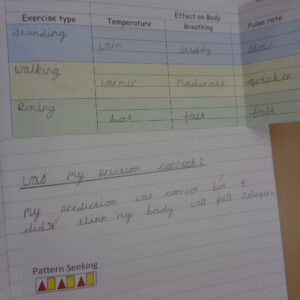 Effect on Body
Exercise type Temperature Breathing Pulse rate
Standing
warm steddy slow
Walking
warmer Maderate quicker
Rining
hot fast fast
was my prection correct?
My prediction was correct but I
didn't think my body will fell
Pattern Seeking